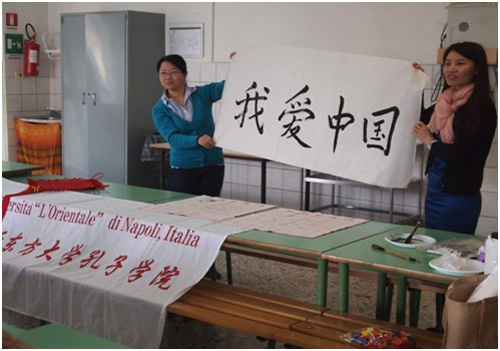 我爱中国
ersita "L'Orientale" di Napoli, Italia
东方大学孔子学院